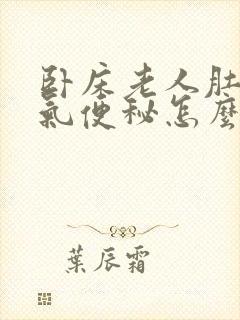 卧床老人肚
氣便秘怎麼
葉辰霜